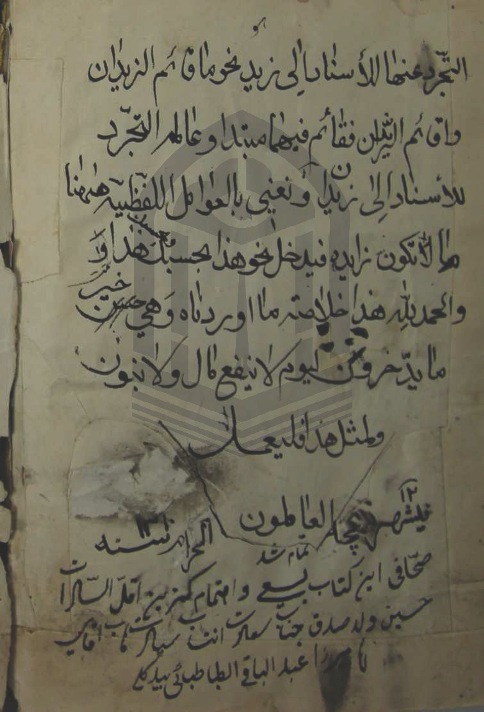 التجرّد عنها للأسناد الى زيد نحو ما قائم الزيدان
واقائم الزيدان فقائم فيهما مبتدا وعامله التجرّد
للأسناد الى زيدان ونعني بالعوامل اللفظيه ههنا
مالا تكون زايده فيدخل نحو هذا بحسبك هذا و
والحمد لله هذا خلاصته ما اوردناه وهي خير
ما يدّخر ليوم لا ينفع مال ولا بنون
ولمثل هذا فليعمل
العاملون
١٢
الحرام سنه
تمام شد
صحافى اين كتاب بسعى واهتمام كمترين اقلّ السادات
حسين ولد صدق جناب سعادت سيادت
ميرزا عبد الباقى الطباطبائى